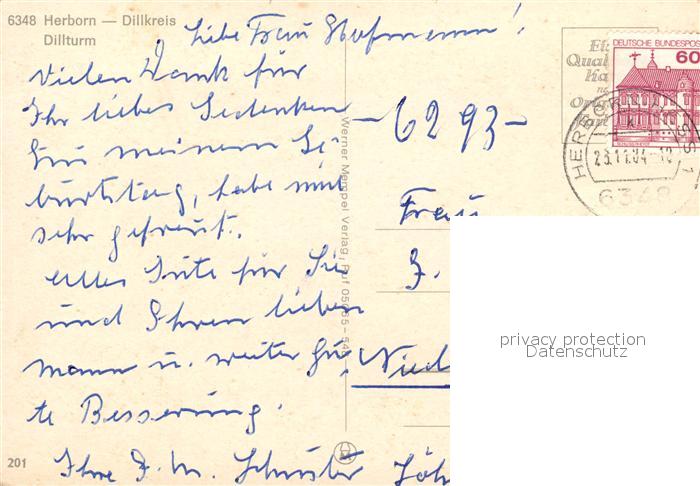 6348 Herborn — Dillkreis
Dillturm
Liebe Frau Hofmann!
Vielen Dank für
Ihr liebes Gedenken
zu meinem Ge-
burtstag, habe mich
sehr gefreut.
Alles Gute für Sie
und Ihren lieben
Mann u. weiter gu-
te Besserung.
Ihre F. M. Schuster
201
Werner Mempel Verlag, Ruf
-6293-
Frau
Nied
DEUTSCHE BUNDESPOST
60
23.11.84
6348
privacy protection
Datenschutz